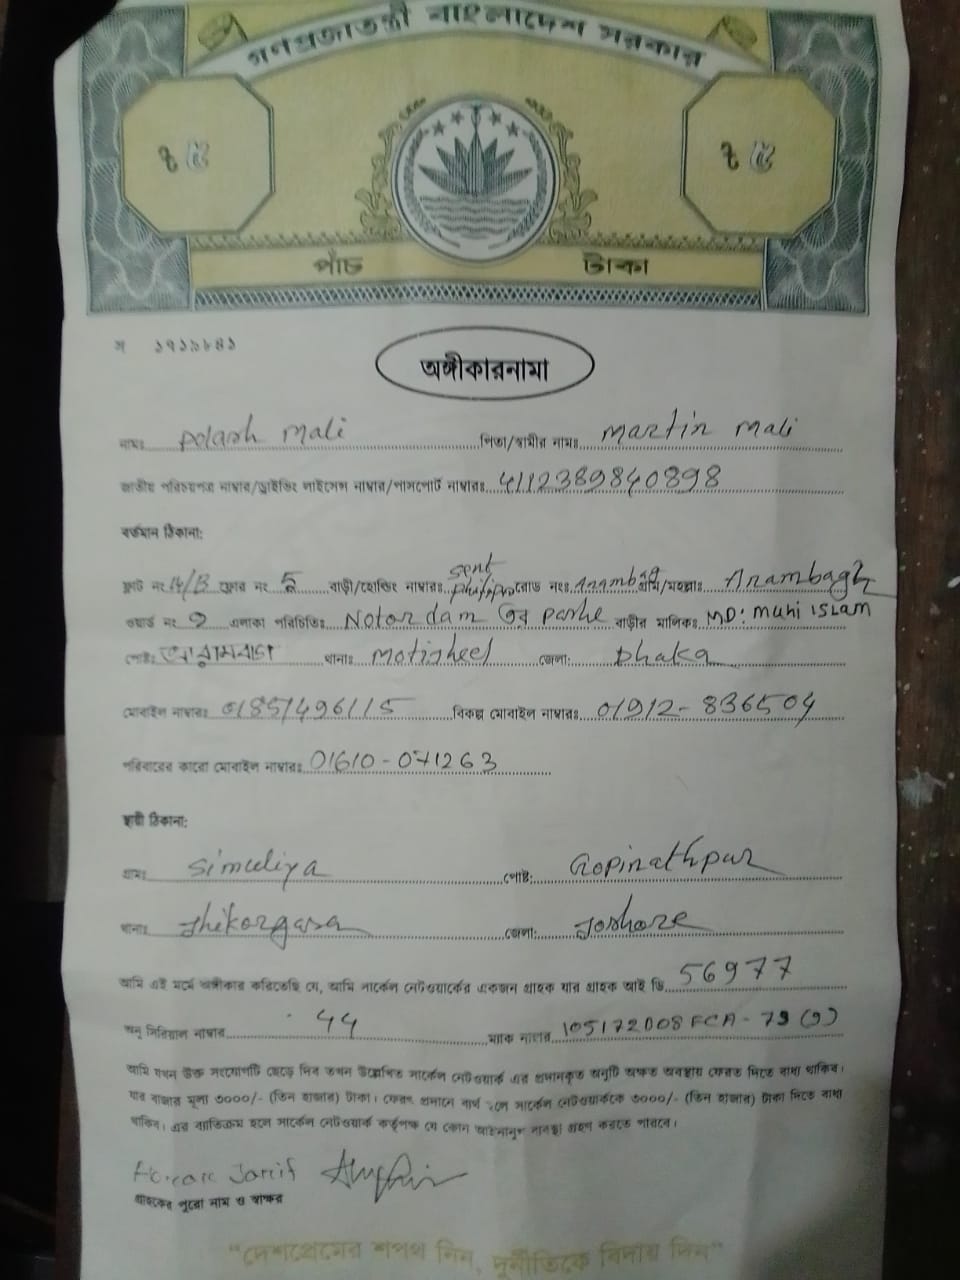 গণপ্রজাতন্ত্রী বাংলাদেশ সরকার
৳ ৫ ৳ ৫
পাঁচ টাকা
গ ১৭১৯৮৪১
অঙ্গীকারনামা
নামঃ Polash Mali পিতা/স্বামীর নামঃ Martin Mali
জাতীয় পরিচয়পত্র নাম্বার/ড্রাইভিং লাইসেন্স নাম্বার/পাসপোর্ট নাম্বারঃ 4112389840898
বর্তমান ঠিকানা:
ফ্লাট নং 14/B ফ্লোর নং 5 বাড়ী/হোল্ডিং নাম্বারঃ sent রোড নংঃ Arambag গ্রাম/মহল্লাঃ Arambagh
ওয়ার্ড নং 9 এলাকা পরিচিতিঃ Notordam এর pashe বাড়ীর মালিকঃ MD: Muhi ISLAM
পোষ্টঃ আরামবাগ থানাঃ Motijheel জেলা: Dhaka
মোবাইল নাম্বারঃ 01851496115 বিকল্প মোবাইল নাম্বারঃ 01912-836504
পরিবারের কারো মোবাইল নাম্বারঃ 01610-071263
স্থায়ী ঠিকানা:
গ্রামঃ Simuliya পোষ্ট: Gopinathpur
থানাঃ Jhikorgasa জেলা: Joshore
আমি এই মর্মে অঙ্গীকার করিতেছি যে, আমি সার্কেল নেটওয়ার্কের একজন গ্রাহক যার গ্রাহক আই ডি 56977
অনু সিরিয়াল নাম্বার 44 ম্যাক নাম্বার 105172D08FCA-79 (9)
আমি যখন উক্ত সংযোগটি ছেড়ে দিব তখন উল্লেখিত সার্কেল নেটওয়ার্ক এর প্রদানকৃত অনুটি অক্ষত অবস্থায় ফেরত দিতে বাধ্য থাকিব।
যার বাজার মূল্য ৩০০০/- (তিন হাজার) টাকা। ফেরৎ প্রদানে ব্যর্থ হলে সার্কেল নেটওয়ার্ককে ৩০০০/- (তিন হাজার) টাকা দিতে বাধ্য
থাকিব। এর ব্যতিক্রম হলে সার্কেল নেটওয়ার্ক কর্তৃপক্ষ যে কোন আইনানুগ ব্যবস্থা গ্রহণ করতে পারবে।
গ্রাহকের পুরো নাম ও স্বাক্ষর
"দেশপ্রেমের শপথ নিন, দুর্নীতিকে বিদায় দিন"